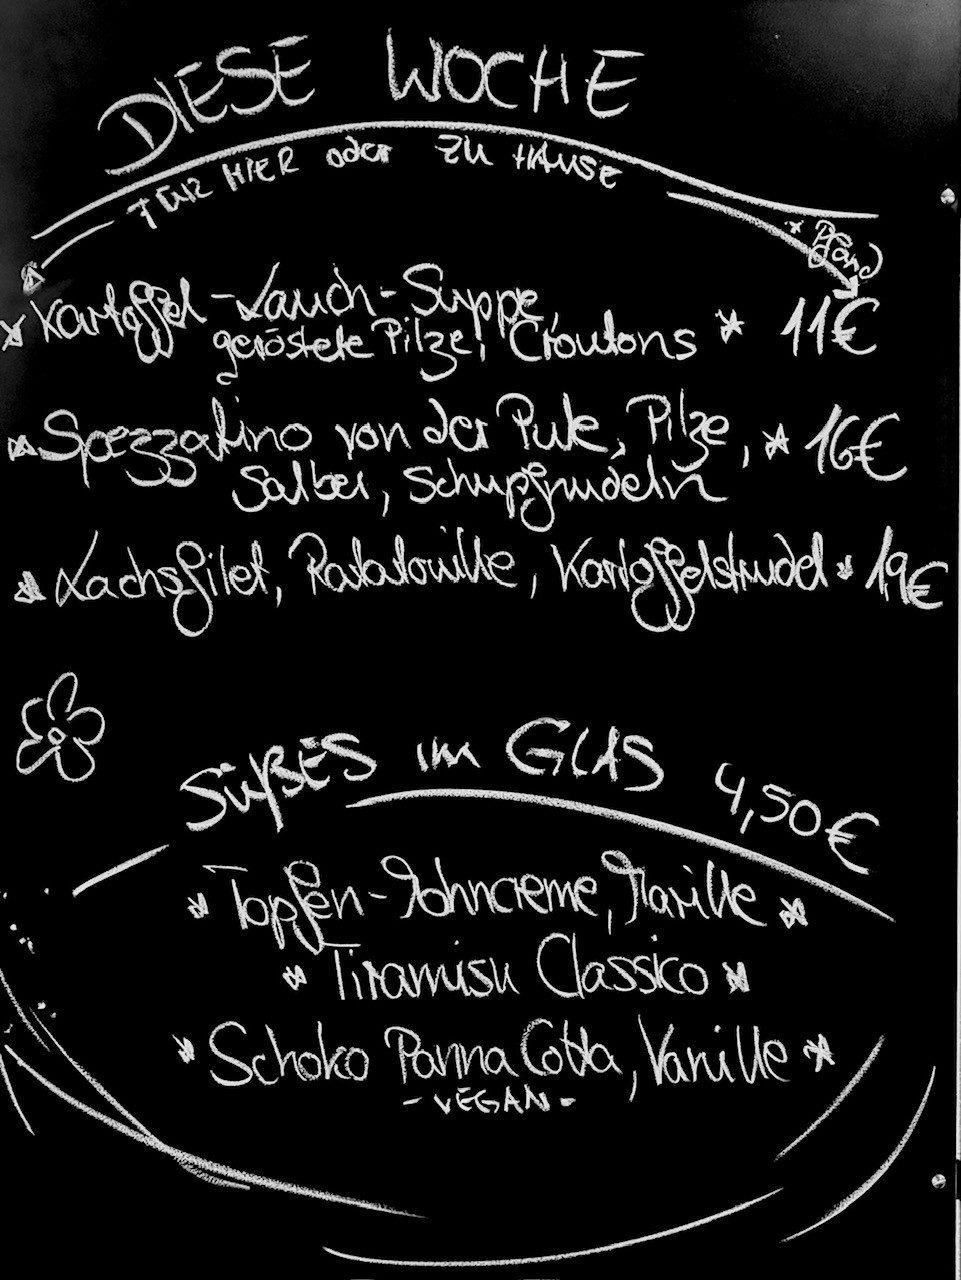 DIESE WOCHE
FÜR HIER oder ZU HAUSE
* Pfand
* Kartoffel-Lauch-Suppe, * 11€
geröstete Pilze, Croutons
* Spezzatino von der Pute, Pilze, * 16€
Salbei, Schupfnudeln
* Lachsfilet, Ratatouille, Kartoffelstrudel * 19€
SÜßES im GLAS 4,50€
* Topfen-Mohncreme, Marille *
* Tiramisu Classico *
* Schoko Panna Cotta, Vanille *
- VEGAN -